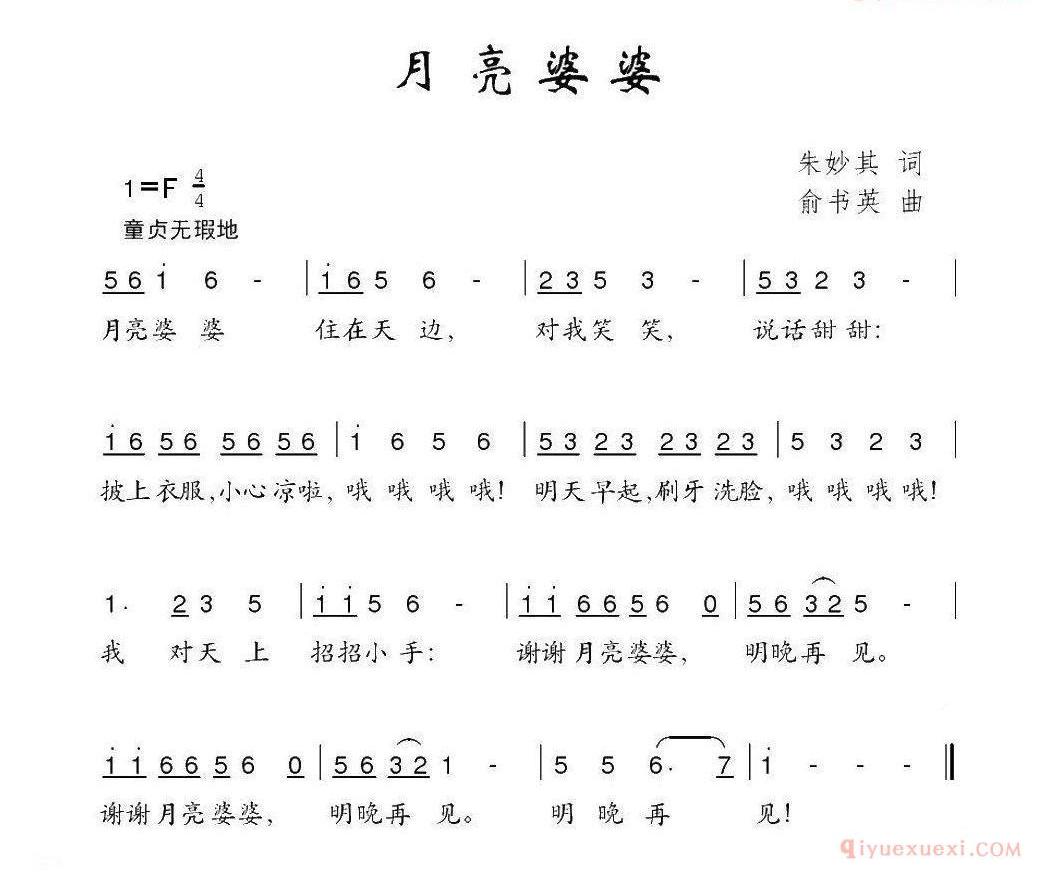 月亮婆婆
朱妙其 词
1=F 4/4
俞书英 曲
童贞无瑕地
5 6 i 6 - | i 6 5 6 - | 2 3 5 3 - | 5 3 2 3 - |
月亮婆 婆 住在天 边, 对我笑 笑, 说话甜 甜:
i 6 5 6 5 6 5 6 | i 6 5 6 | 5 3 2 3 2 3 2 3 | 5 3 2 3 |
披上衣服,小心凉啦, 哦 哦 哦 哦! 明天早起,刷牙洗脸, 哦 哦 哦 哦!
1. 2 3 5 | i i 5 6 - | i i 6 6 5 6 0 | 5 6 3 2 5 - |
我 对天 上 招招小 手: 谢谢月亮婆婆, 明晚再 见。
i i 6 6 5 6 0 | 5 6 3 2 1 - | 5 5 6. 7 | i - - - ‖
谢谢月亮婆婆, 明晚再 见。 明 晚 再 见!
qiyuexuexi.COM